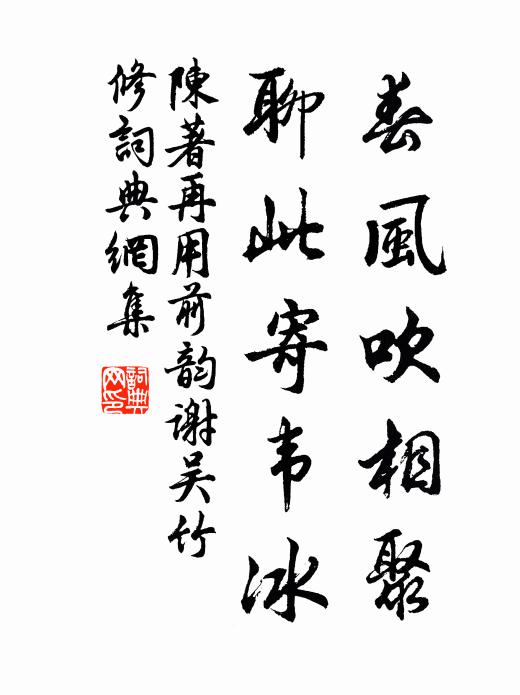 春風吹相聚
聊此寄韦冰
陳著再用前韵谢吴竹
修詞典網集
詞典网印